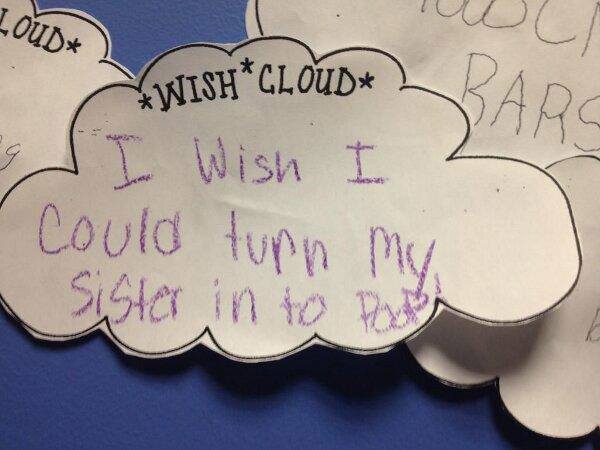 LOUD*
*WISH*CLOUD*
I Wish I
Could turn My
Sister in to
BARS